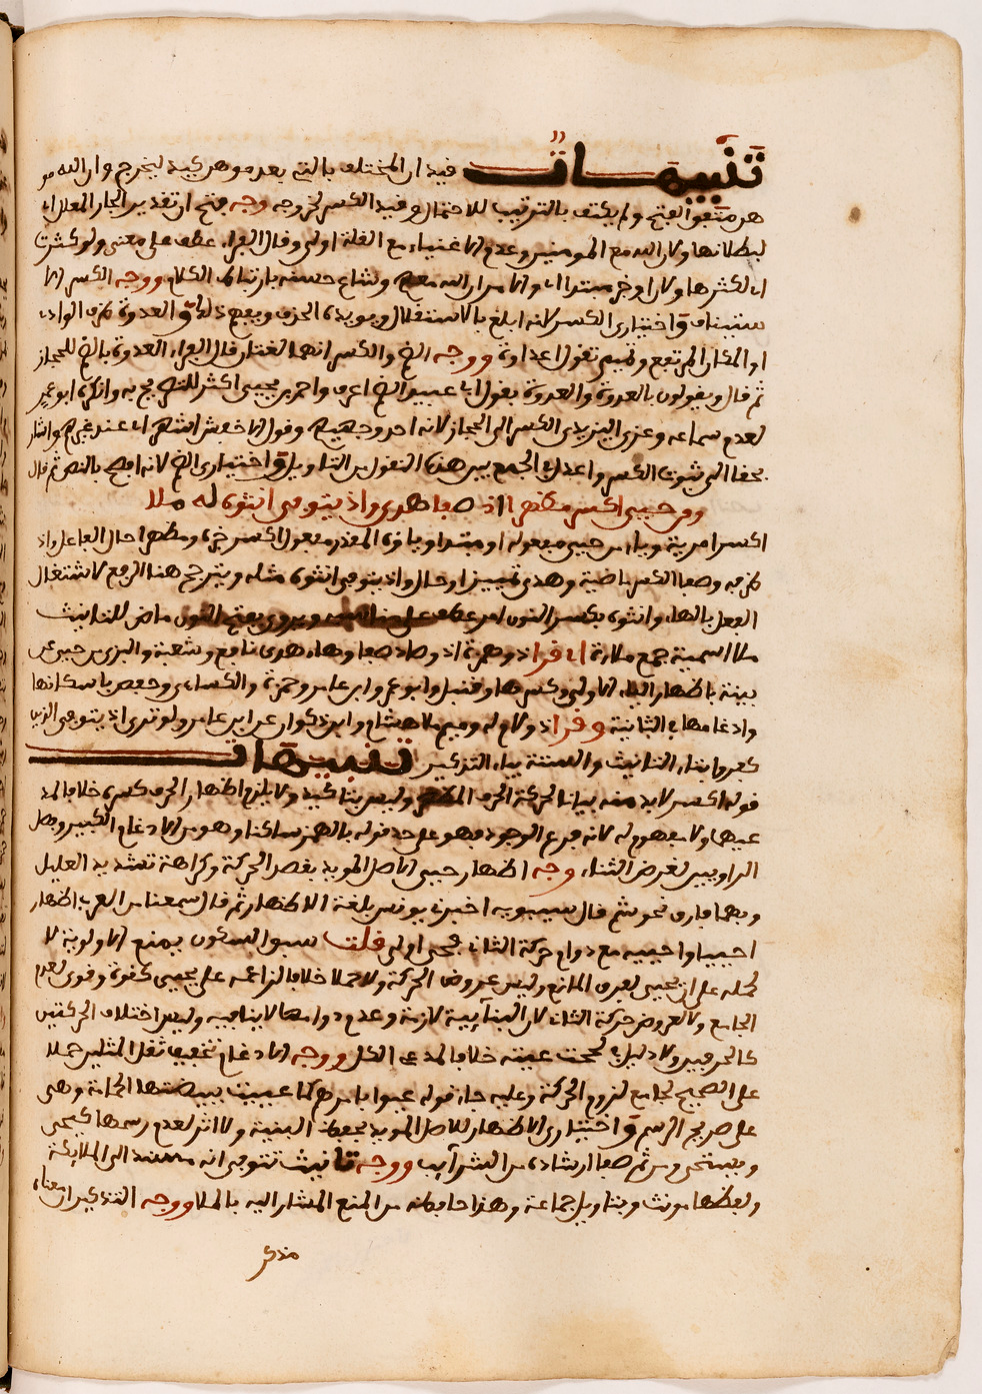 تنبيهات قيد ان المختلف بالتي بعد موهن كيد ليخرج وان الله مو
هن متفق الفتح ولم يكتف بالترتيب للاحتمال وقيد الكسر لخروجه وجه فتح ان تقدير الجار المعلل اي
لبطلانها ولان الله مع المومنين وعدم الاغنياء مع القلة اولى وقال الفراء عطف على معنى ولو كثرت
اي لكثرتها ولان او خبر مبتدا اي والامر ان الله معهم وشاع حسنه بارتباط الكلام ووجه الكسر الا
ستيناف واختياري الكسر لانه ابلغ بالاستقلال ويويده الحرف ويفهم ذلك و العدوة طرف الوادي
او المكان المرتفع وتميم تقول اعداوة ووجه الضم والكسر انهما لغتان قال الفراء العدوة بالضم للحجاز
ثم قال ويقولون بالعدوة والعدوة يقول ابي عبيد الضم اعرف واحمد بن يحيى اكثر للتصريح به وانكره ابو عمرو
لعدم سماعه وعزى اليزيدي الكسر الى الحجاز لانه احد وجهيهم وقول الاخفش اشهر اي عند غيرهم واشار
بحقا الى ثبوت الكسر واعدل الجمع بين هذه النقول بين التاويل واختياري الضم لانه افصح بالنص ثم قال
ومن حيي اكسر مظهرا اذ صفا هدى واذ يتوفى انثوه له ملا
اكسر امرية وياء من حيي مفعوله او مبتدا وياؤه المقدر مفعول اكسر خبره ومظهرا حال الفاعل واذ
ظرفه وصفا الكسر ماضية وهدى تمييز او حال واذ يتوفى انثوه مثله ويترجح هنا الرفع لاشتغال
الفعل بالهاء وانثوه بكسر النون امر ويروى بفتح النون ماض للتانيث
ملا اسمية جمع ملاءة اي قرا ذو همزة اذ وصاد صفا وهاء هدى نافع وشعبة والبزي من حيي عن
بينة باظهار الياء الاولى وكسرها وقنبل وابو عمرو وابن عامر وحمزة والكسائي وحفص باسكانها
وادغامها في الثانية وقرا ذو لام له وميم ملا هشام وابن ذكوان عن ابن عامر ولو ترى اذ يتوفى الذين
كفروا بتاء التانيث والستة بياء التذكير تنبيهات
قوله اكسر لا بد منه بيانا لحركة الحرف وليس بتاكيد ولا يلزم اظهار الحرف كسره خلافا لمد
عيها ولا مفهوم له لانه فرع الوجود فهو على حد قوله بالهمز ساكنا وهو من الادغام الكبير وفصل
الراويين لغرض الثناء وجه اظهار حيي الاصل المويد بفصل الحركة وكراهة تشديد العليل
وبهما فارق نحو شم قال سيبويه اخبرني يونس بلغة الاظهار ثم قال سمعنا من العرب اظهار
احييا واحييه مع دوام حركة الثاني فحيي اولى قلت سبق السكون يمنع الاولوية لا
لحمله على ان يحيي لفرق المانع وليس عروض الحركة ولا حملا خلافا لزاعمه على يحيى كقوة وقوي لعدم
الجامع ولا لعروض حركة الثاني لان البنائية لازمة وعدم دوامها لا ينافيه وليس اختلاف الحركتين
كالحرفين ولا دليل في لححت عينه خلافا لمدعي الكل ووجه الادغام تخفيف ثقل المثلين حملا
على الصحيح لجامع لزوم الحركة وعليه جاء قوله عيوا بامرهم كما عييت ببيضتها الحمامة وهي
على صريح الرسم واختياري الاظهار للاصل المويد بحفظ البنية ولا اثر لعدم رسمها كيحيى
ويستحيي ومن ثم صفا ارشاده من الشرايب ووجه تانيث تتوفى انه مسند الى الملائكة
ولفظها مونث وبتاويل جماعة وهذا حافظه من المنع المشار اليه بالملا ووجه التذكير ان معناه
مذكر